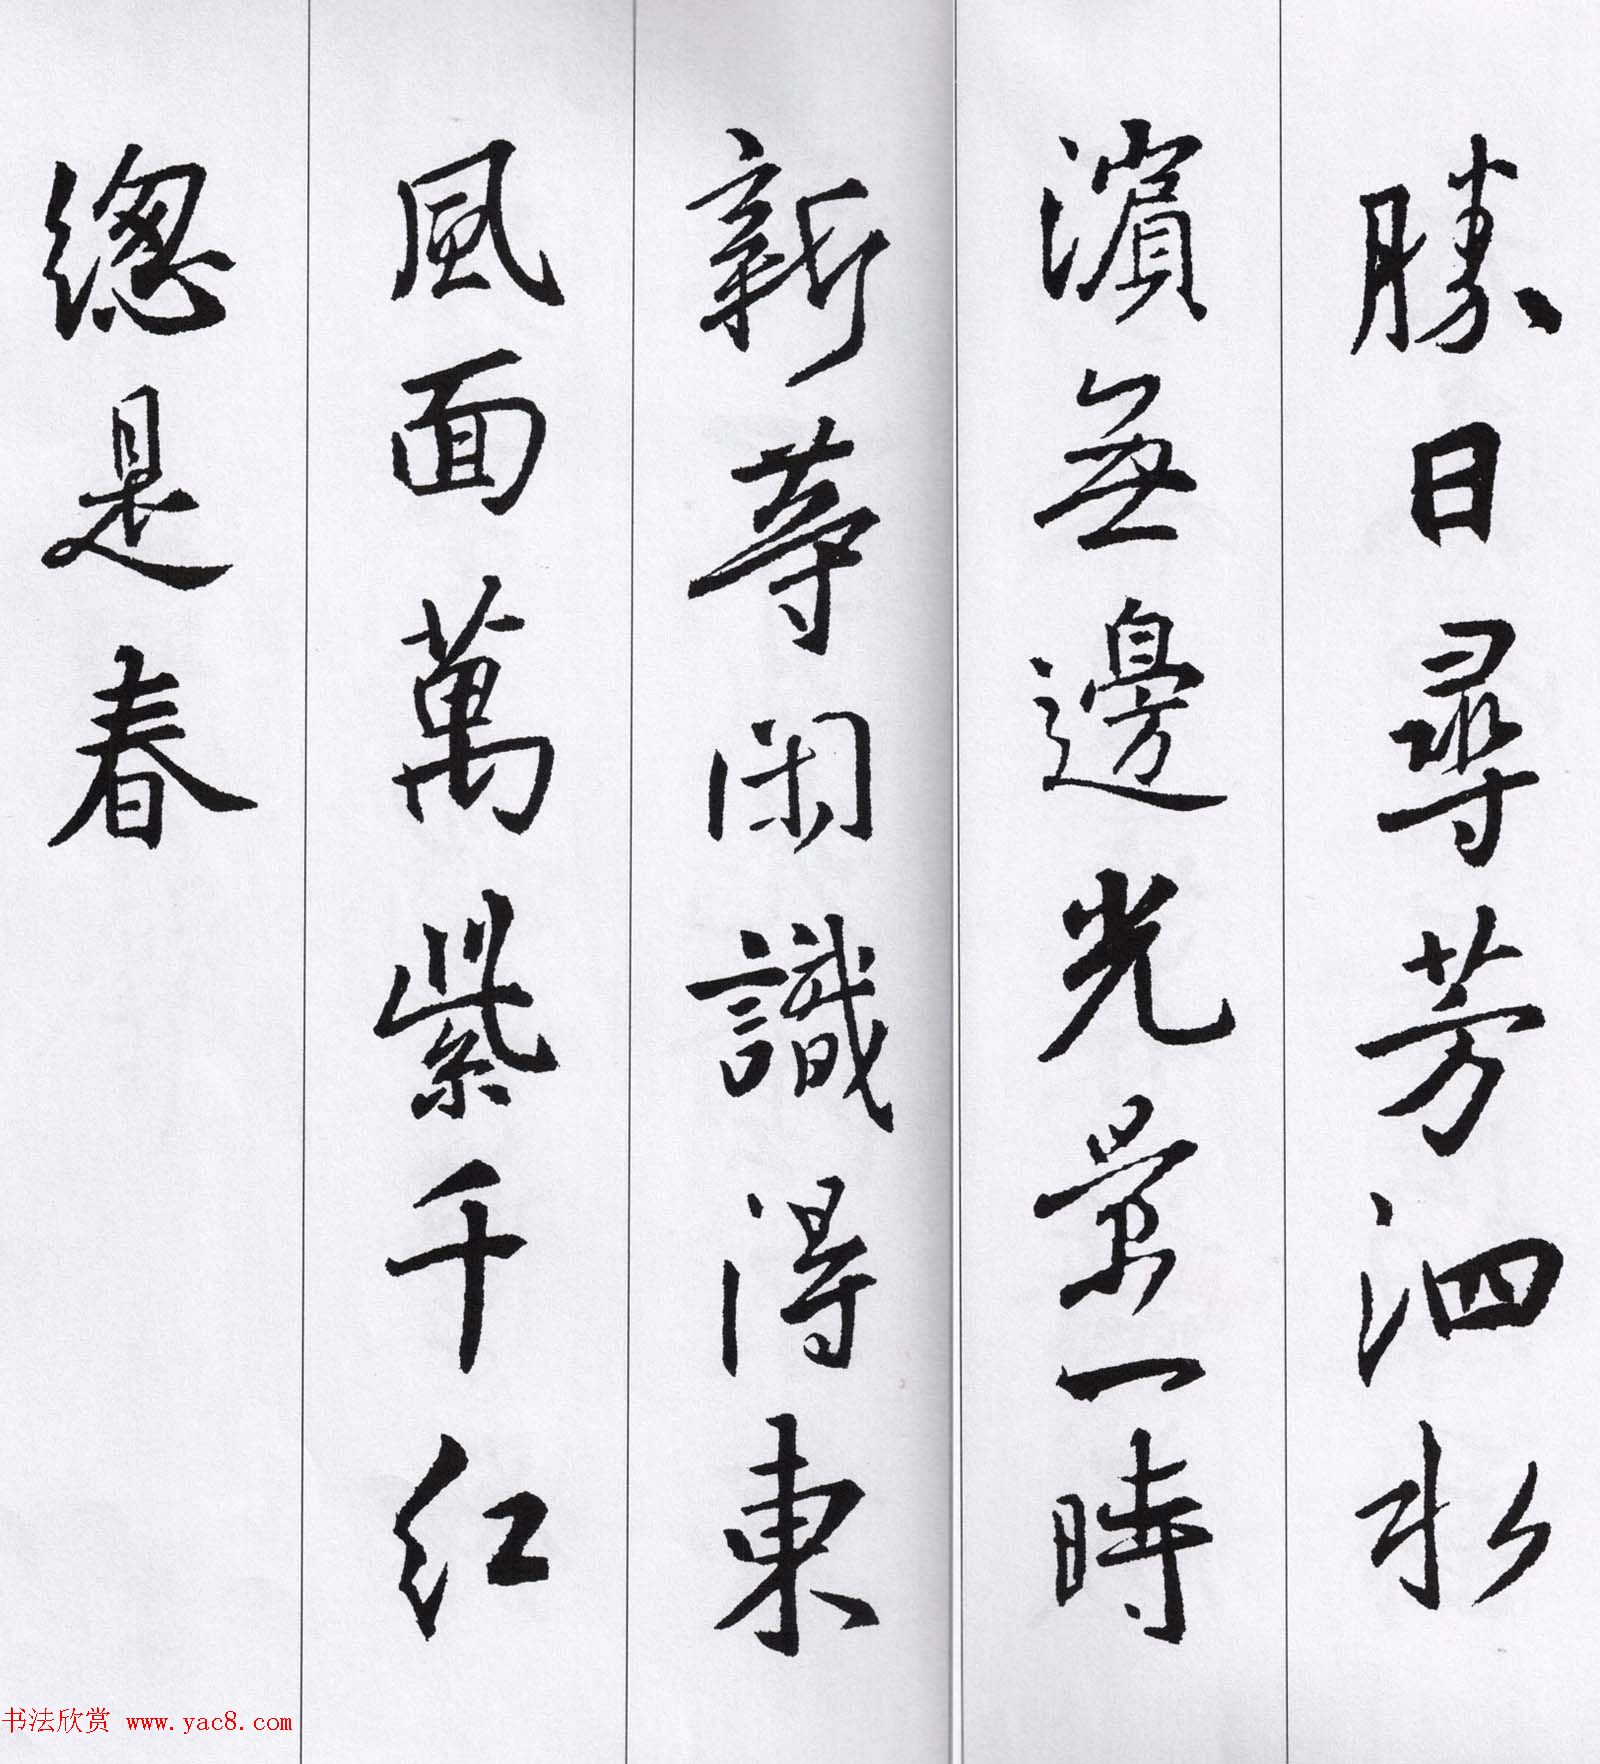 勝日尋芳泗水
濱無邊光景一時
新等閑識得東
風面萬紫千紅
總是春
书法欣赏 www.yac8.com